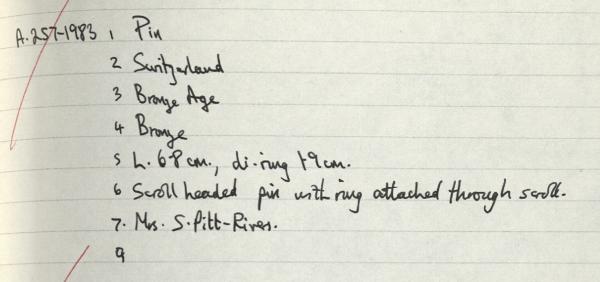 A.257-1983 1 Pin
2 Switzerland
3 Bronze Age
4 Bronze
5 L. 6.8 cm., di. ring 1.9 cm.
6 Scroll headed pin with ring attached through scroll.
7. Mrs. S. Pitt-Rivers.
9